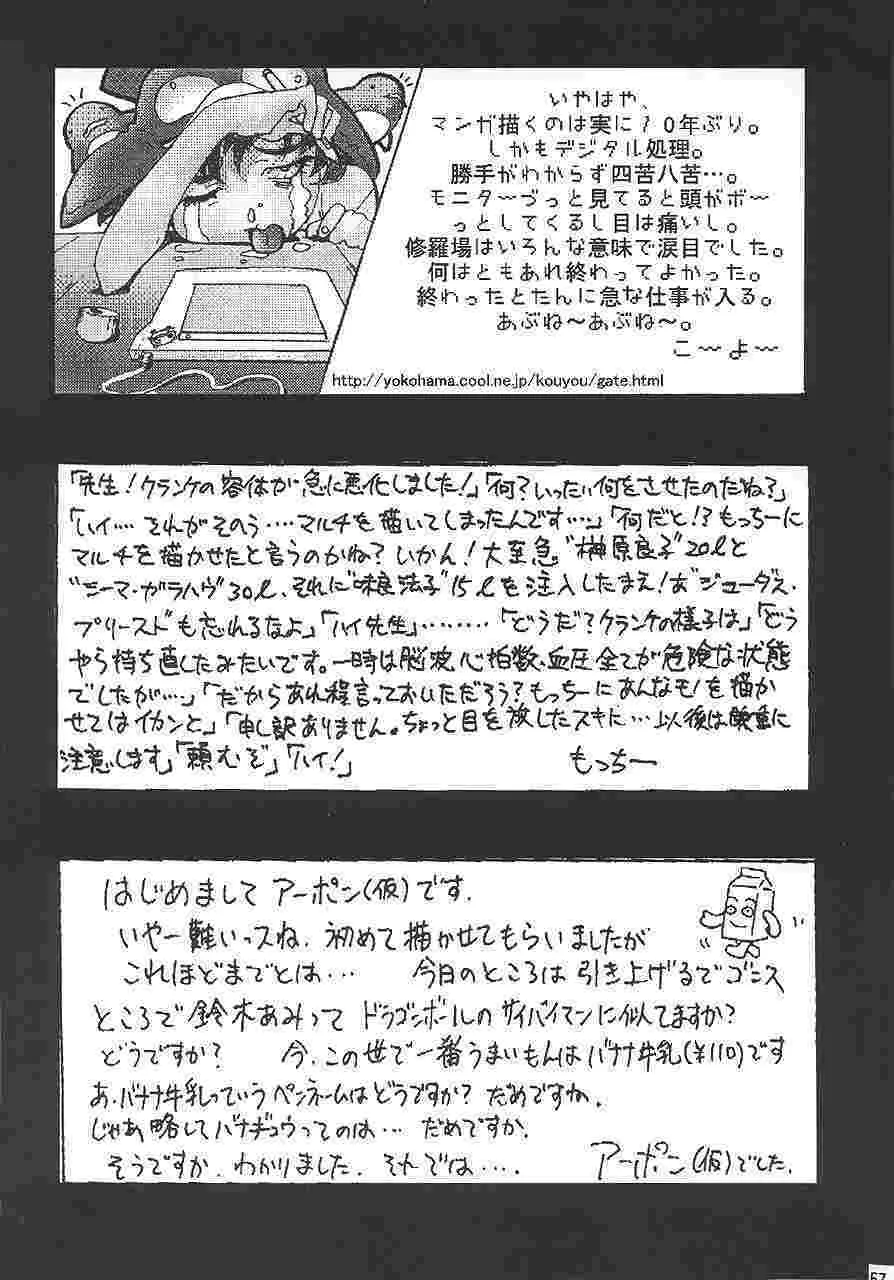 いやはや、
マンガ描くのは実に10年ぶり。
しかもデジタル処理。
勝手がわからず四苦八苦…。
モニターづっと見てると頭がボ〜
っとしてくるし目は痛いし。
修羅場はいろんな意味で涙目でした。
何はともあれ終わってよかった。
終わったとたんに急な仕事が入る。
あぶね〜あぶね〜。
こ〜よ〜
http://yokohama.cool.ne.jp/kouyou/gate.html
「先生！クランケの容体が急に悪化しました！」「何？いったい何をさせたのだね？」
「ハイ…それがそのう…マルチを描いてしまったんです…」「何だと！？もっちーに
マルチを描かせたと言うのかね？いかん！大至急"榊原良子"20lと
"ニーマ・ガラハヴ"30l、それに"味良法子"15lを注入したまえ！あ"ジューダス・
プリースト"も忘れるなよ」「ハイ先生」………「どうだ？クランケの様子は」「どう
やら持ち直したみたいです。一時は脳波、心拍数、血圧全てが危険な状態
でしたが…」「だからあれ程言っておいただろう？もっちーにあんなモノを描か
せてはイカンと」「申し訳ありません。ちょっと目を放したスキに…以後は慎重に
注意します」「頼むぞ」「ハイ！」
もっちー
はじめまして アーポン(仮)です.
いやー難いっスね. 初めて描かせてもらいましたが
これほどまでとは… 今日のところは引き上げるでゴンス
ところで鈴木あみって ドラゴンボールのサイバイマンに似てますか?
どうですか? 今、この世で一番うまいもんはバナナ牛乳(¥110)です
あ、バナナ牛乳っていうペンネームはどうですか? だめですね.
じゃあ略してバナギュウってのは… だめですか.
そうですか. わかりました. それでは….
アーポン(仮)でした.
67